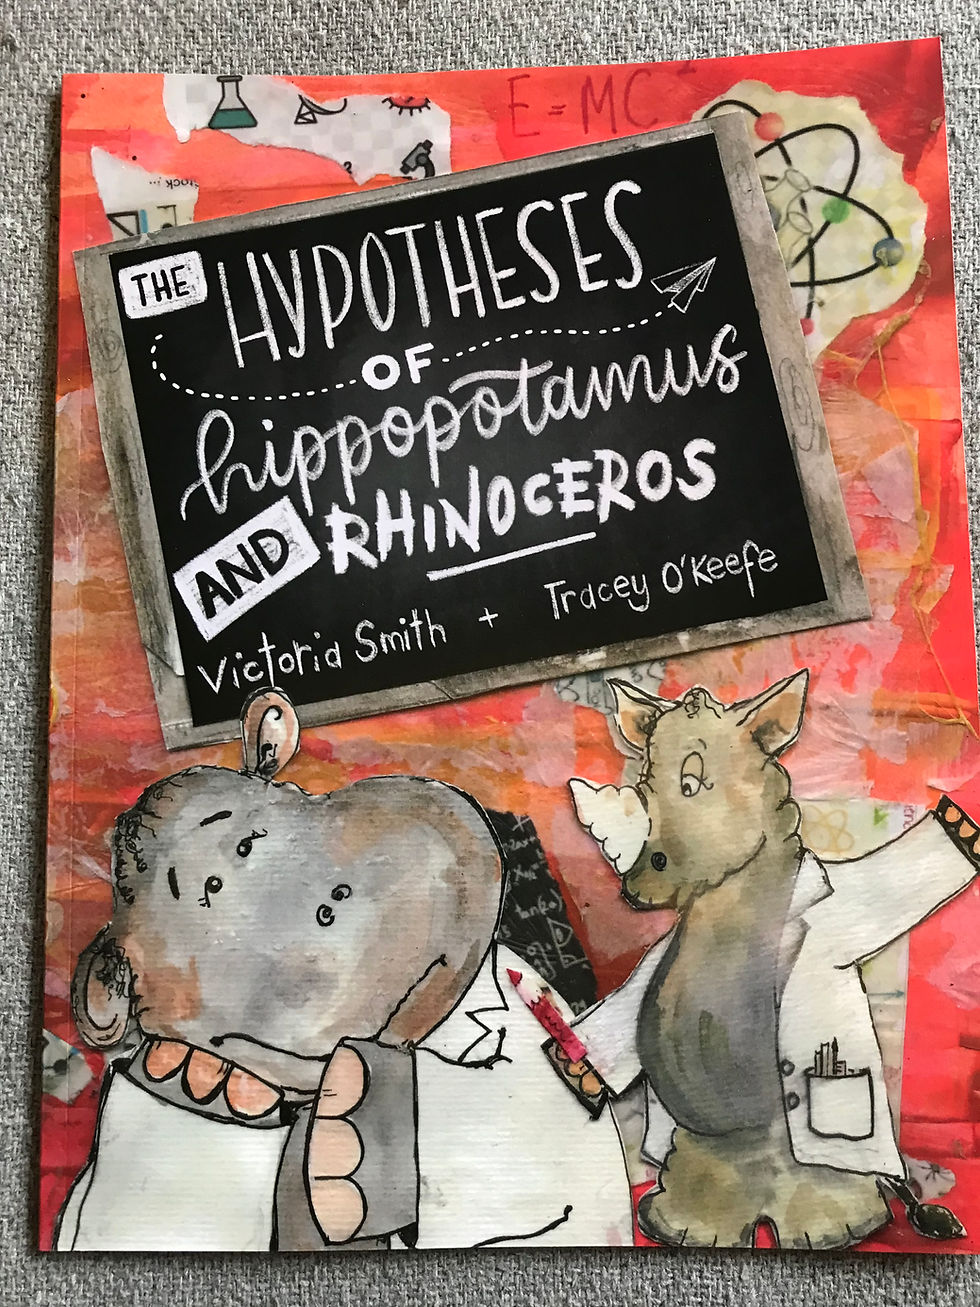 E=MC²
THE HYPOTHESES
OF
hippopotamus
AND RHINOCEROS
Victoria Smith + Tracey O'Keefe